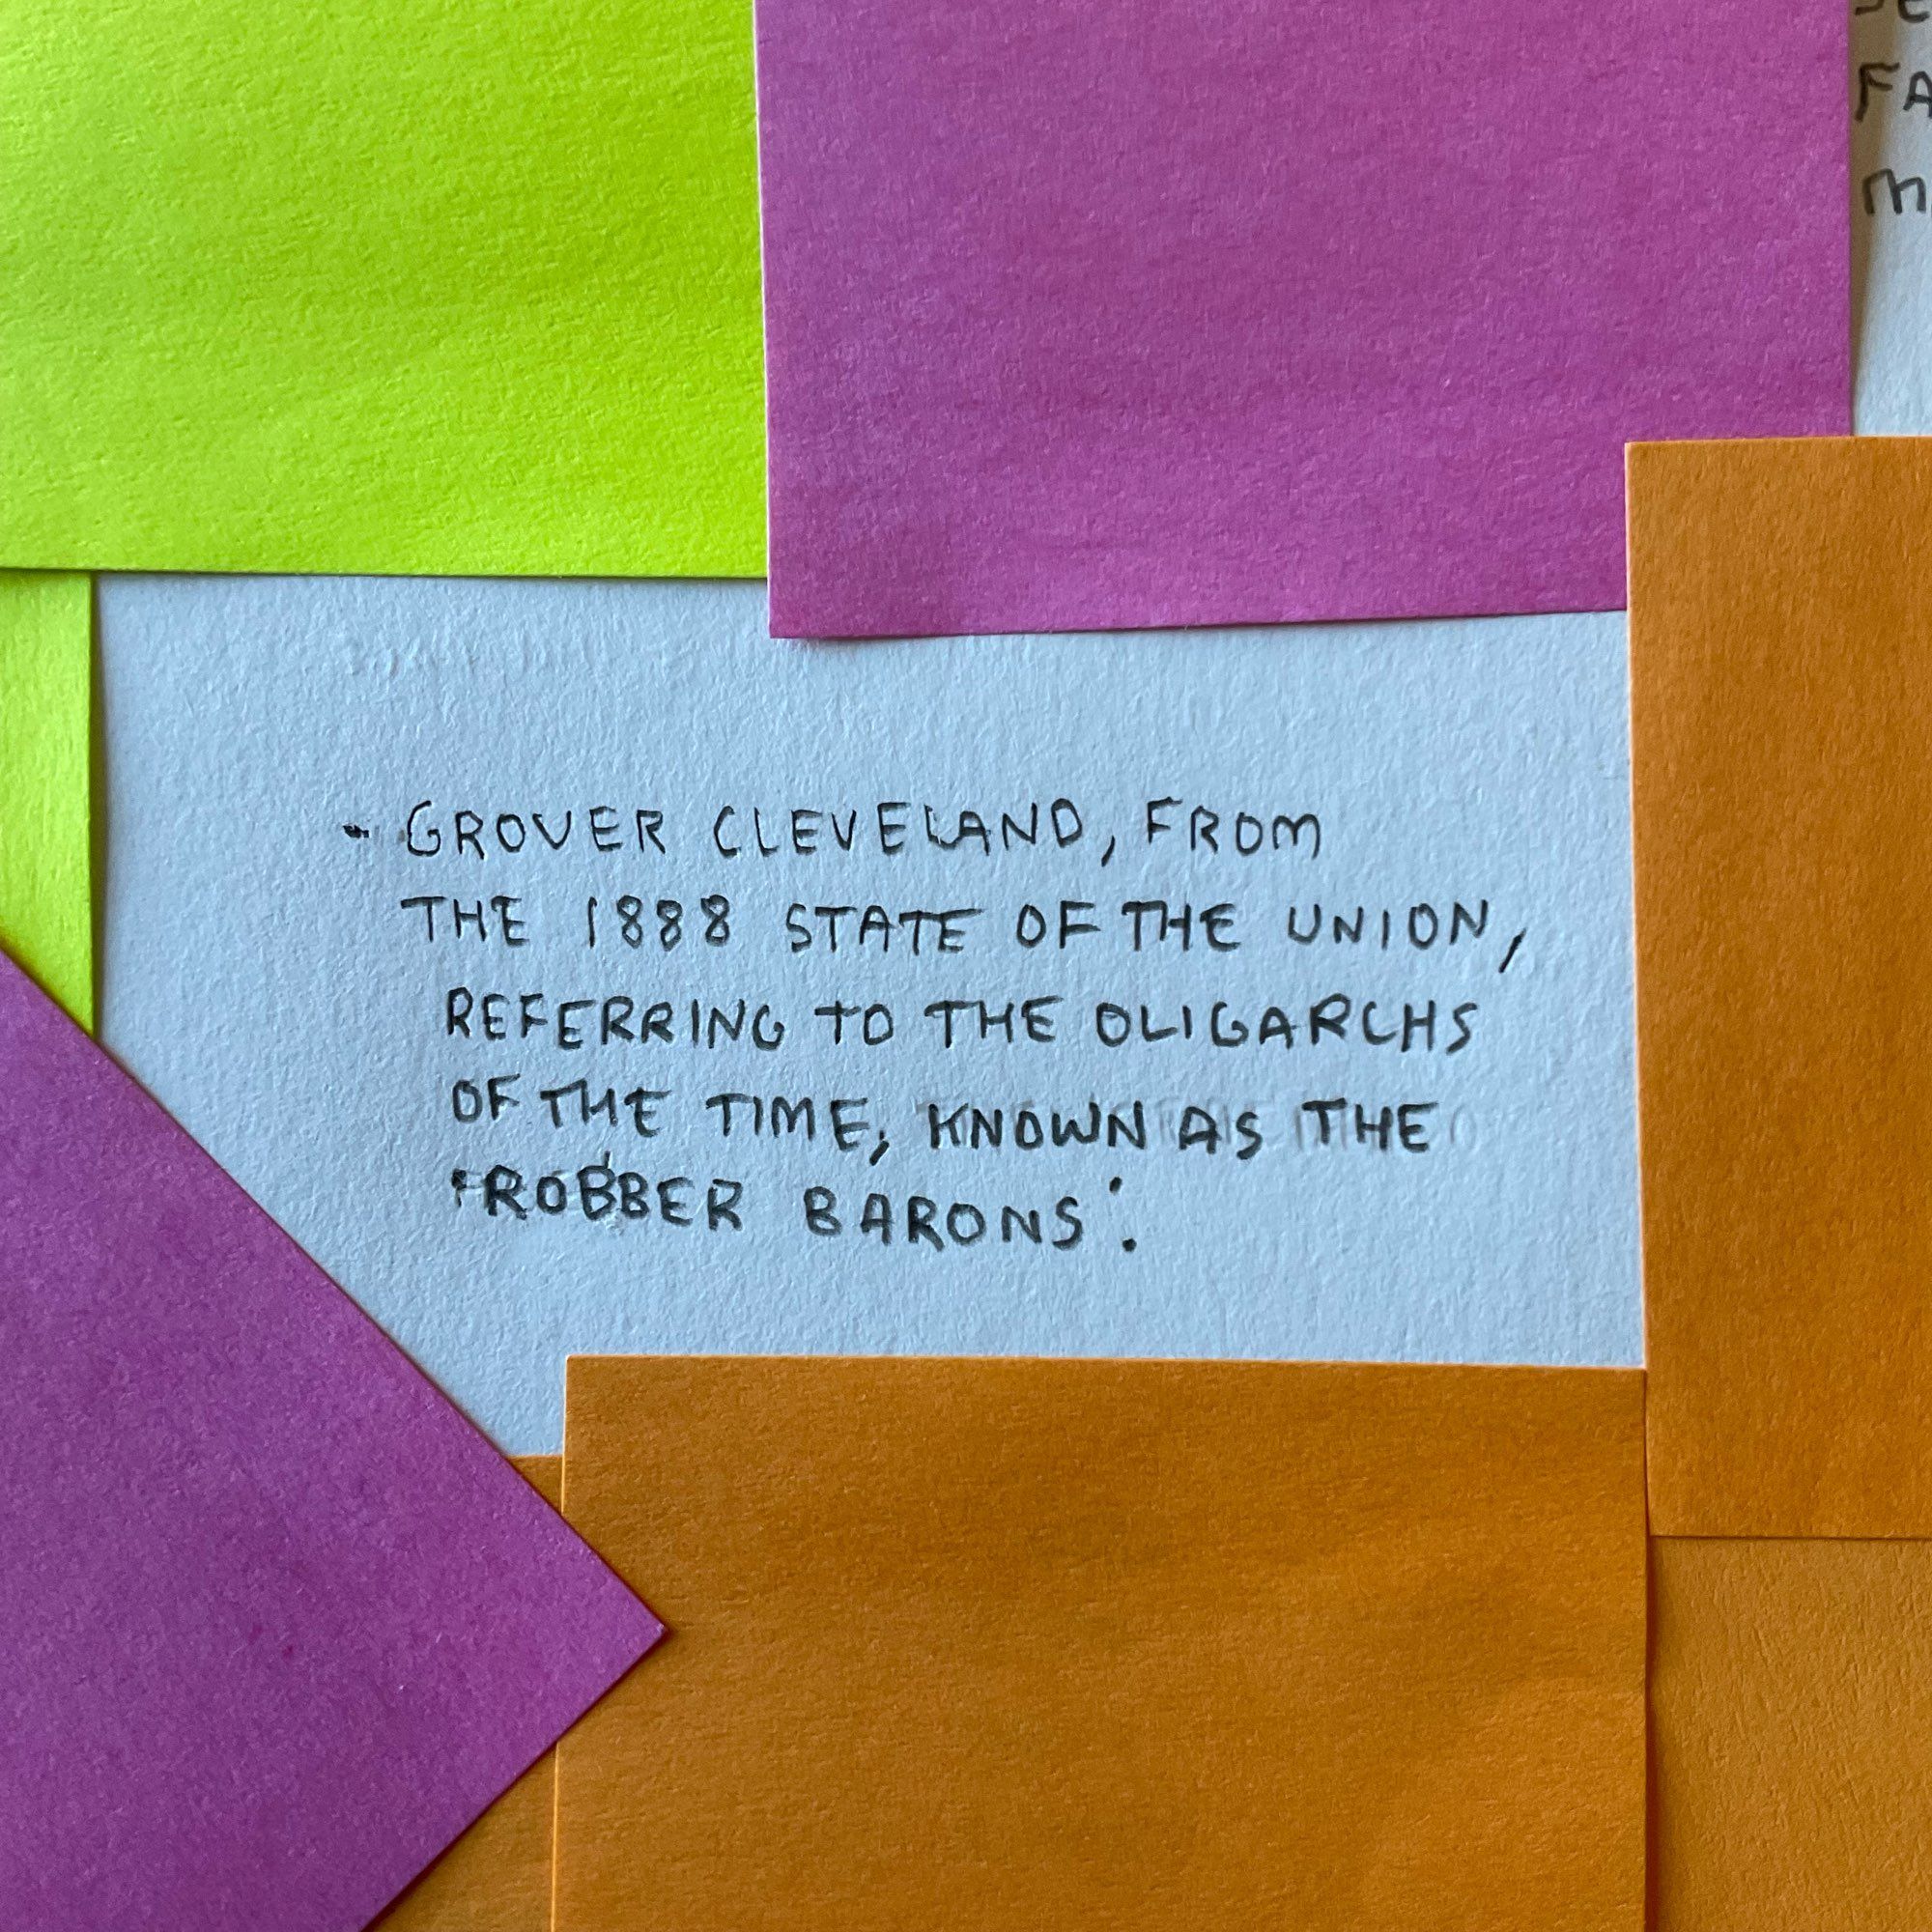 FA
M
- GROVER CLEVELAND, FROM
THE 1888 STATE OF THE UNION,
REFERRING TO THE OLIGARCHS
OF THE TIME, KNOWN AS THE
'ROBBER BARONS'.